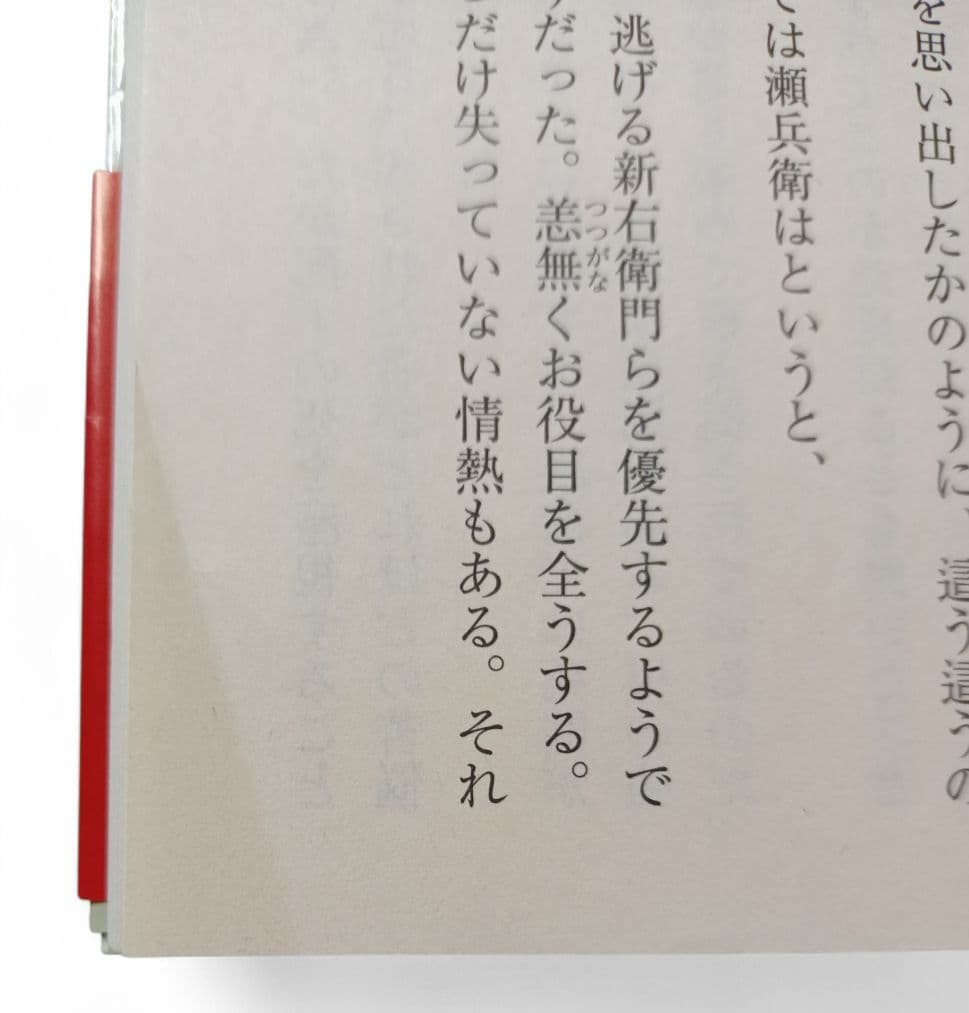 を思い出したかのように、這う這うの
は瀬兵衛はというと、
逃げる新右衛門らを優先するようで
だった。恙無くお役目を全うする。
つつがな
だけ失っていない情熱もある。それ